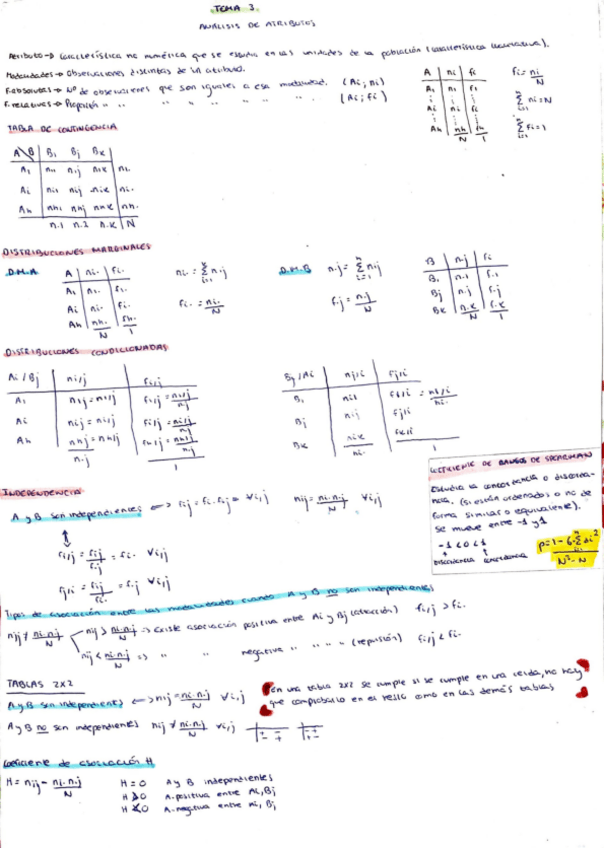 TEMA 3.
ANÁLISIS DE ATRIBUTOS
Atributo → Característica no numérica que se estudia en las unidades de la población (característica cualitativa).
Modalidades → Observaciones distintas de un atributo.
F. absolutas → Nº de observaciones que son iguales a esa modalidad. (Ai; ni)
F. relativas → Proporción " " " " " " " (Ai; fi)
A | ni | fi
A1 | n1 | f1
Ai | ni | fi
Ah | nh | fh
N 1
fi = ni/N
Σ ni = N
Σ fi = 1
TABLA DE CONTINGENCIA
A\B | B1 Bj Bk
A1 | n11 n1j n1k | n1.
Ai | ni1 nij nik | ni.
Ah | nh1 nhj nhk | nh.
n.1 n.2 n.k | N
DISTRIBUCIONES MARGINALES
D.M.A
A | ni. | fi.
A1 | n1. | f1.
Ai | ni. | fi.
Ah | nh. | fh.
N 1
fi. = ni./N
D.M.B
f.j = n.j/N
B | n.j | fj
B1 | n.1 | f.1
Bj | n.j | f.j
Bk | n.k | f.k
N 1
DISTRIBUCIONES CONDICIONADAS
Ai/Bj | ni/j | fi/j
Ai | nij = ni/j | fi/j = ni/j / n.j
n.j 1
Bj/Ai | nj/i | fj/i
B1 | ni1
Bj | nij | fj/i
Bk | nik | fk/i
ni. 1
INDEPENDENCIA
A y B son independientes ↔ fij = fi. f.j ∀i,j nij = ni. n.j / N ∀i,j
fi/j = fij / f.j = fi. ∀i,j
fj/i = fij / fi. = f.j ∀i,j
COEFICIENTE DE RANGOS DE SPEARMAN
Estudia la concordancia o discordancia. (si están ordenados o no de
forma similar o equivalente).
Se mueve entre -1 y 1
-1 < 0 < 1
Discordancia concordancia
Tipos de asociación entre las modalidades cuando A y B no son independientes
nij ≠ ni. n.j / N
nij > ni. n.j / N → Existe asociación positiva entre Ai y Bj (atracción) fi/j > fi.
nij < ni. n.j / N → " " negativa " " " " (repulsión) fi/j < fi.
TABLAS 2X2
A y B son independientes ↔ nij = ni. n.j / N ∀i,j
en una tabla 2x2 se cumple si se cumple en una celda, no hay
que comprobarlo en el resto como en las demás tablas
A y B no son independientes nij ≠ ni. n.j / N ∀i,j
Coeficiente de asociación H
H = nij - ni. n.j / N
H = 0 A y B independientes
H > 0 A. positiva entre Ai, Bj
H < 0 A. negativa entre